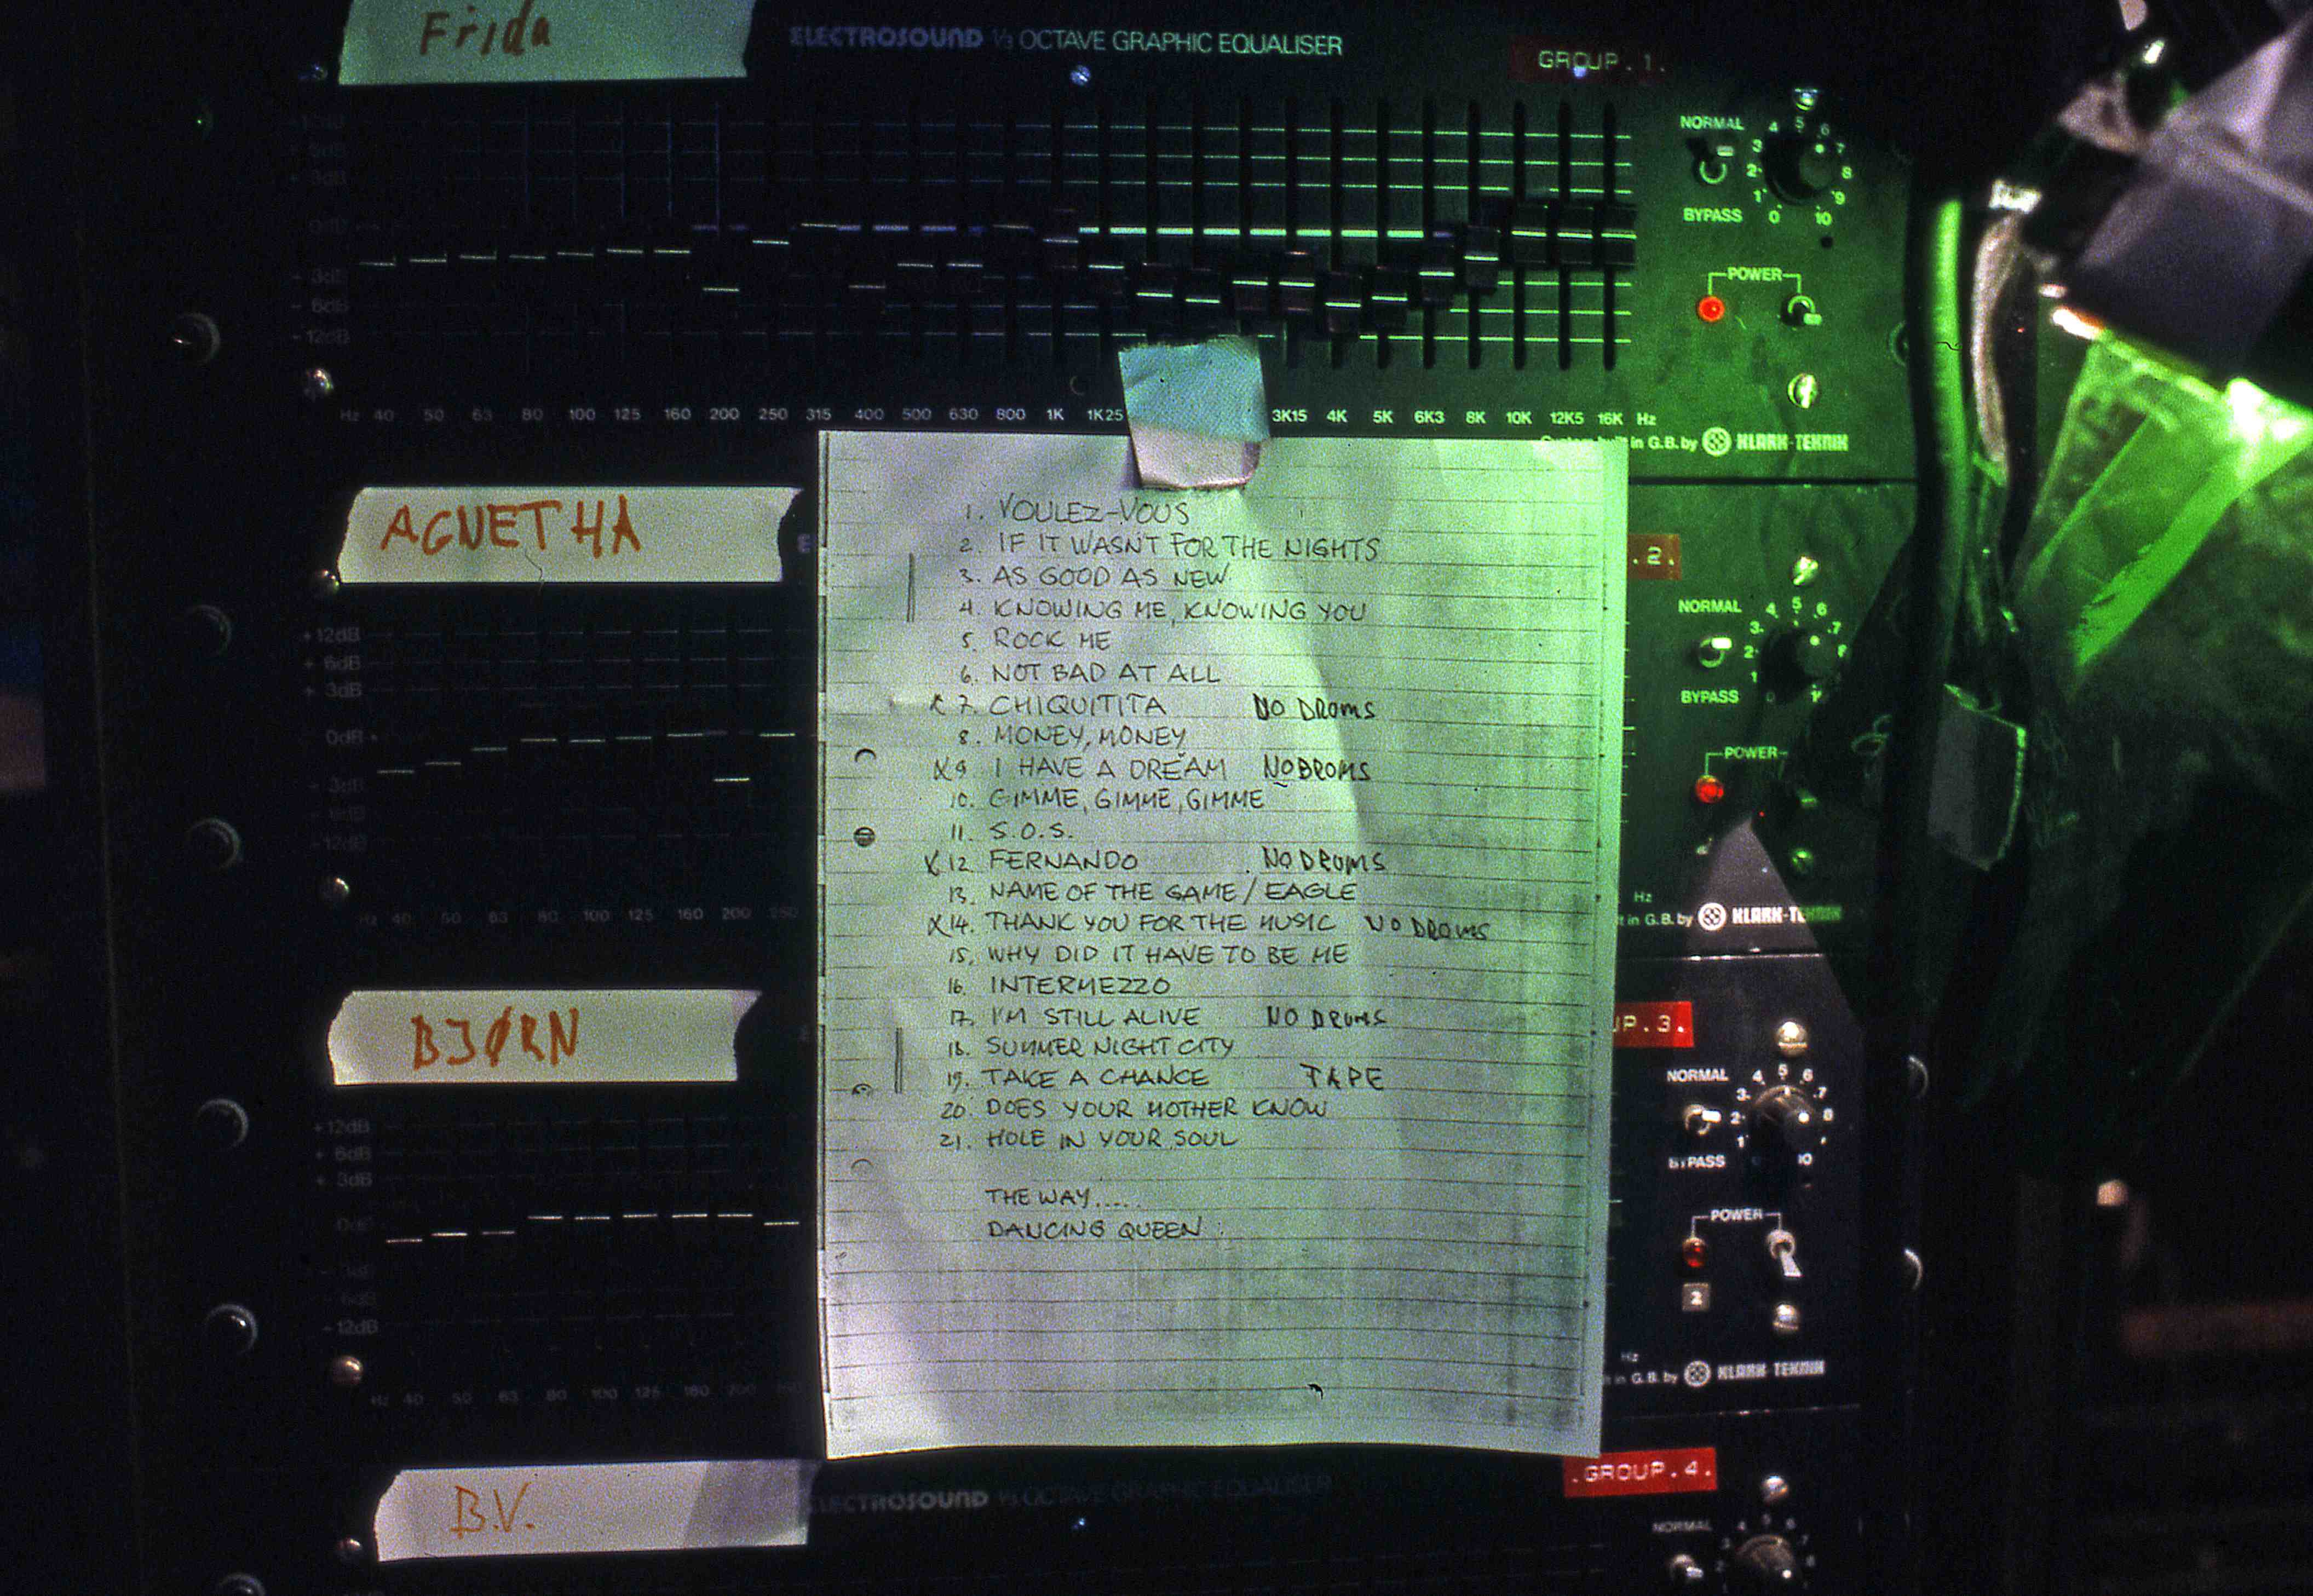 Frida
ELECTROSOUND 1/3 OCTAVE GRAPHIC EQUALISER
GROUP.1.
NORMAL
0 1 2 3 4 5 6 7 8 9 10
BYPASS
POWER
3dB
6dB
- 12dB
Hz 40 50 63 80 100 125 160 200 250 315 400 500 630 800 1K 1K25 3K15 4K 5K 6K3 8K 10K 12K5 16K Hz
in G.B. by KLARK-TEKNIK
AGNETHA
1. VOULEZ-VOUS
2. IF IT WASN'T FOR THE NIGHTS
3. AS GOOD AS NEW
4. KNOWING ME, KNOWING YOU
5. ROCK ME
6. NOT BAD AT ALL
7. CHIQUITITA NO DRUMS
8. MONEY, MONEY
9 I HAVE A DREAM NO DRUMS
10. GIMME, GIMME, GIMME
11. S.O.S.
12 FERNANDO NO DRUMS
13. NAME OF THE GAME / EAGLE
14. THANK YOU FOR THE MUSIC NO DRUMS
15. WHY DID IT HAVE TO BE ME
16. INTERMEZZO
17. I'M STILL ALIVE NO DRUMS
18. SUMMER NIGHT CITY
19. TAKE A CHANCE TAPE
20. DOES YOUR MOTHER KNOW
21. HOLE IN YOUR SOUL
THE WAY.....
DANCING QUEEN
.2.
NORMAL
1 2 3 4 5 6 7 8
BYPASS
POWER
+ 12dB
+ 6dB
+ 3dB
0dB
3dB
- 12dB
Hz 40 50 63 80 100 125 160 200 250
Hz
in G.B. by KLARK-TEKNIK
BJØRN
UP.3.
NORMAL
1 2 3 4 5 6 7 8 10
BYPASS
POWER
2
+ 12dB
+ 6dB
+ 3dB
0dB
- 12dB
Hz 40 50 63 80 100 125 160 200 250
Hz
in G.B. by KLARK TEKNIK
B.V.
ELECTROSOUND 1/3 OCTAVE GRAPHIC EQUALISER
.GROUP.4.
NORMAL
2 3 4 5 6 8